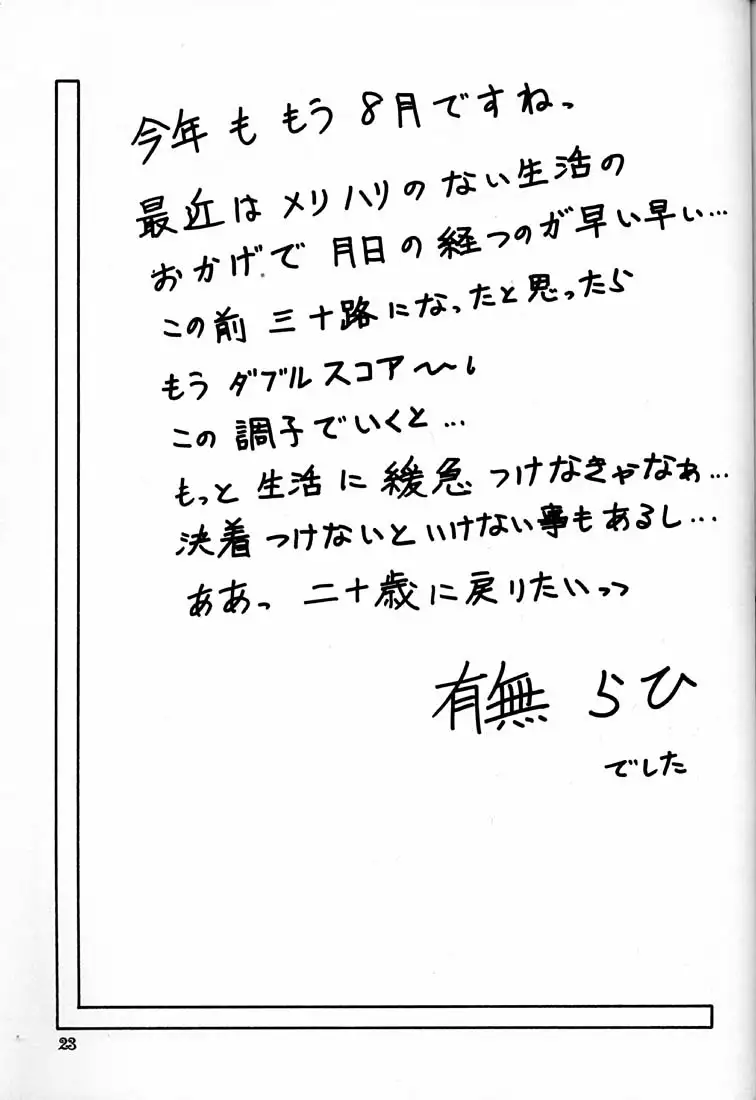 今年ももう8月ですねっ
最近はメリハリのない生活の
おかげで月日の経つのが早い早い…
この前三十路になったと思ったら
もうダブルスコア〜〜！
この調子でいくと…
もっと生活に緩急つけなきゃなぁ…
決着つけないといけない事もあるし…
ああっ二十歳に戻りたいっっ
有無らひ
でした
23